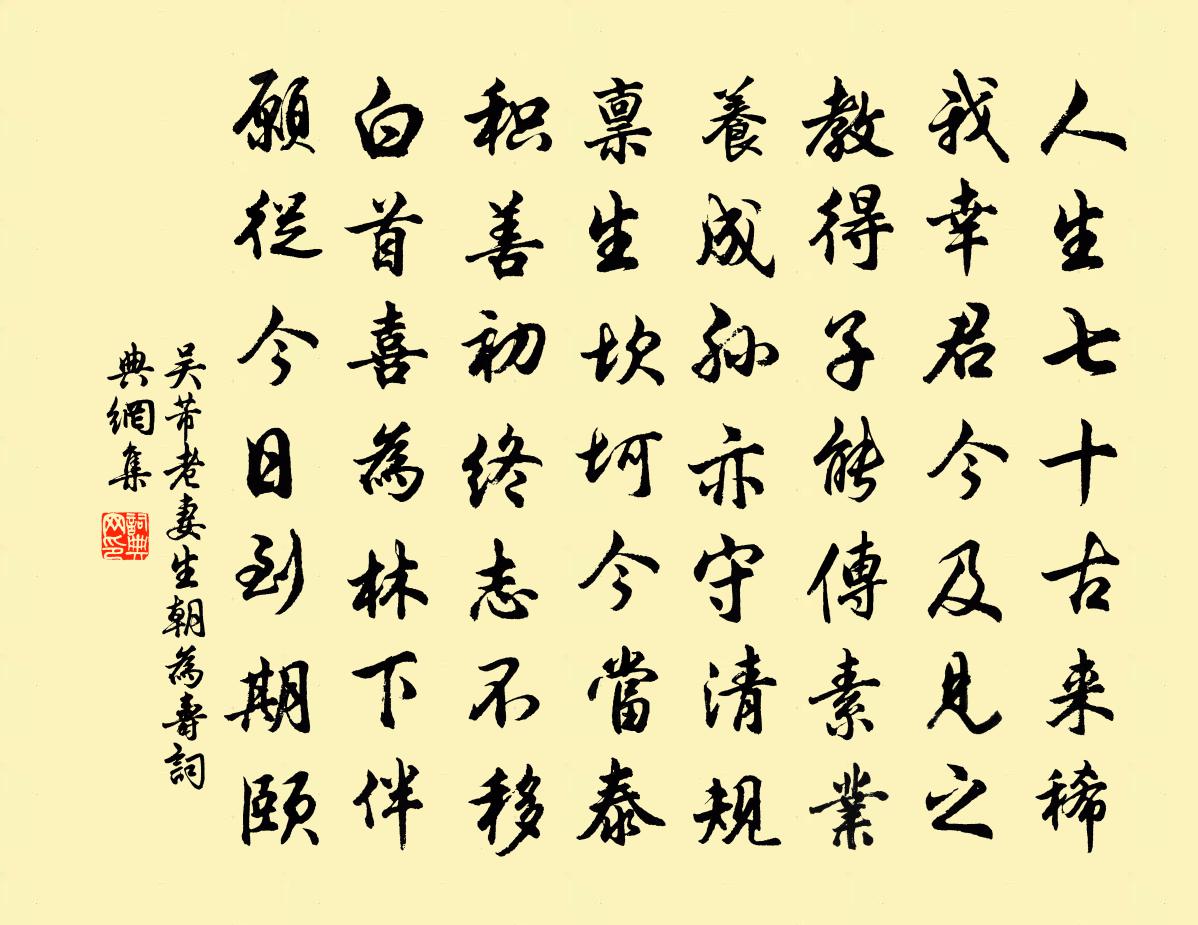 人生七十古来稀
我幸君今及见之
教得子能傳素業
養成孙亦守清規
禀生坎坷今當泰
积善初终志不移
白首喜為林下伴
願從今日到期颐
吴芾老妻生朝為壽詞
典網集
詞典
网印